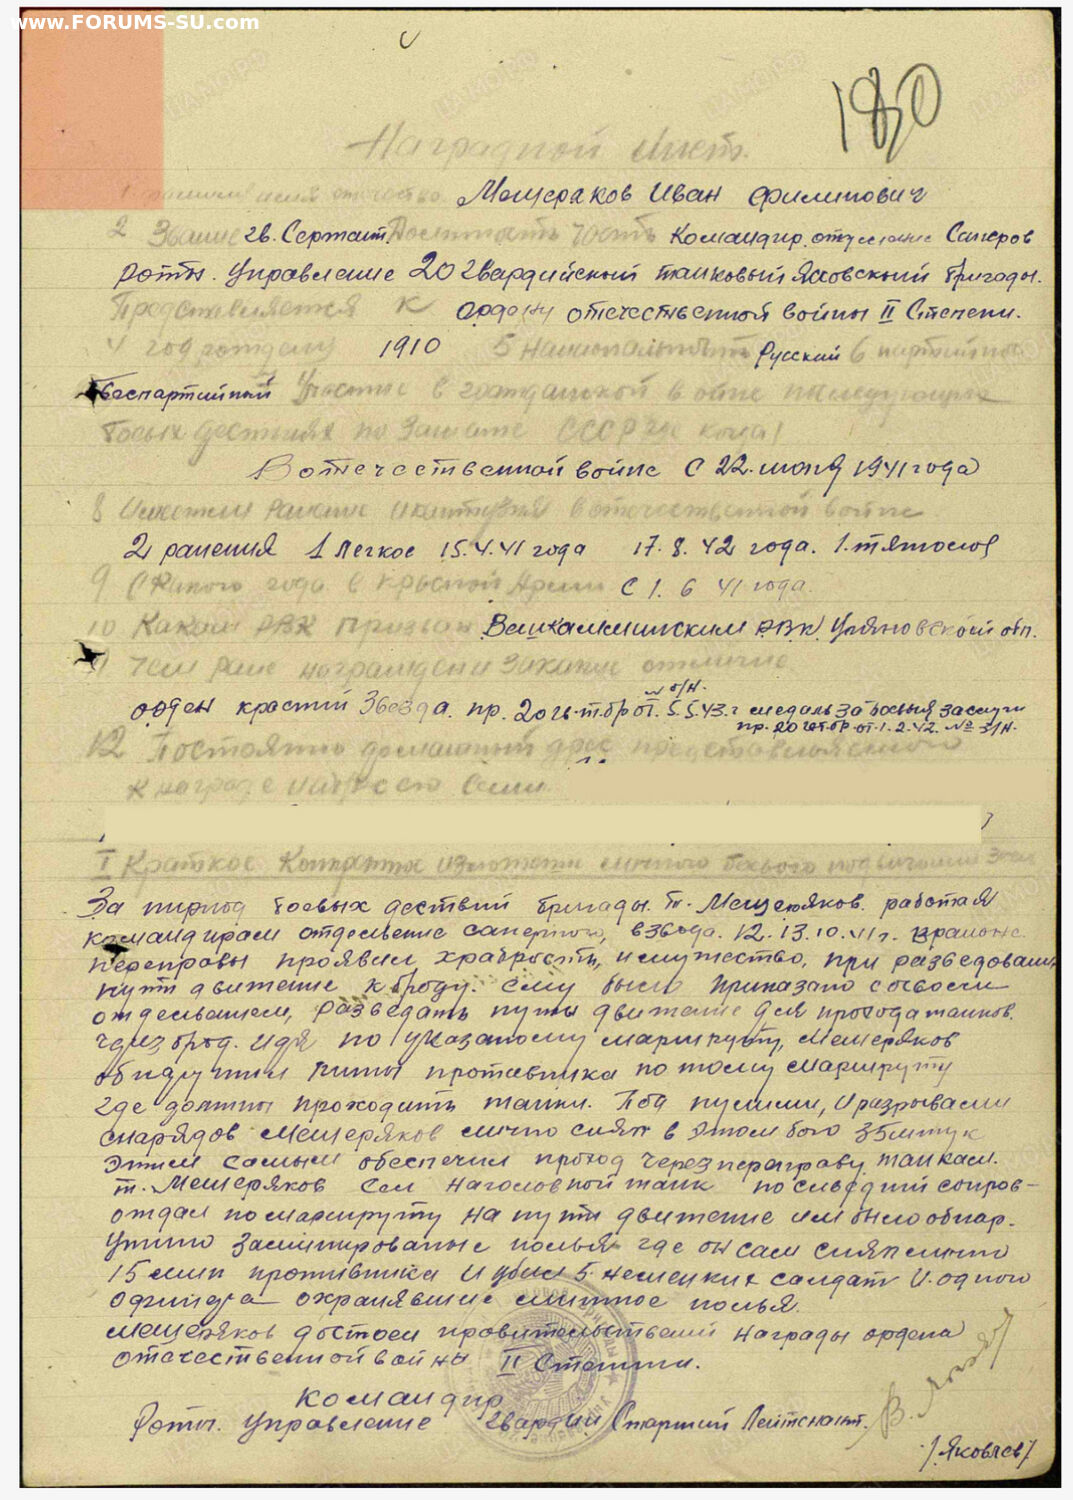 www.FORUMS-SU.com
180
Наградной лист.
имя отчество Мещеряков Иван Филиппович
2 Звание гв. Сержант. Должность часть Командир отделение Саперов
роты. Управление 20 Гвардейской танковый Ясковский бригады.
Представляется к Ордену отечественной войны II Степени.
4 год рождения 1910 5 Национальность Русский 6 партийность
беспартийный Участие в гражданской войне последующие
боевых действиях по Защите СССР где когда
В отечественной войне с 22 июня 1941 года
8 Имеет ли ранение и контузия в отечественной войне
2 ранения 1 легкое 15.4.41 года 17.8.42 года. 1. тяжелое
9 С какого года в Красной Армии с 1. 6 41 года.
10 Каким РВК призван Вешкаминским РВК. Уляновской обл.
11 Чем ране награжден и Закакие отличие
№ б/н.
орден красный Звезда. пр. 20 гв. т. бр от. 5.5.43. г медаль за боевыя заслуги
пр. 20 гт. бр. от. 1. 2. 42. №
12 Постоянно домашный дрес представляемого
к награде и адрес его Семи
I Краткое Конкретное изложение личного боевого подвига или
За пириод боевых дествий бригады. т. Мещеряков. работая
командирам отделение саперного, взвода. 12. 13. 10. 41 г. в раионе.
переправы проявил храбрость, и мужество, при разведовании
пути движение к броду. Ему было приказано с своем
отделением, разведать путь движение для прохода танков.
через брод. Идя по указаному маршруту, Мещеряков
обнаружил мины противника по тому маршруту
где должны проходить танки. Под пулями, и разрывами
снарядов Мещеряков лично снял в этом бою 35 штук
Этим самым обеспечил проход через переправу танкам.
т. Мещеряков сел на головной танк последний сопров-
ождал по маршруту на пути движение им было обнар-
ужино Заминированые полья где он сам снял лично
15 мин противника и убил 5 немецких салдат и одного
офицера охранявшие минное полья.
Мещеряков достоен правительственый награды ордена
отечественной войны II Степини.
Командир
Роты. Управление Гвардии Старший Лейтенант.
/. Яковлев/